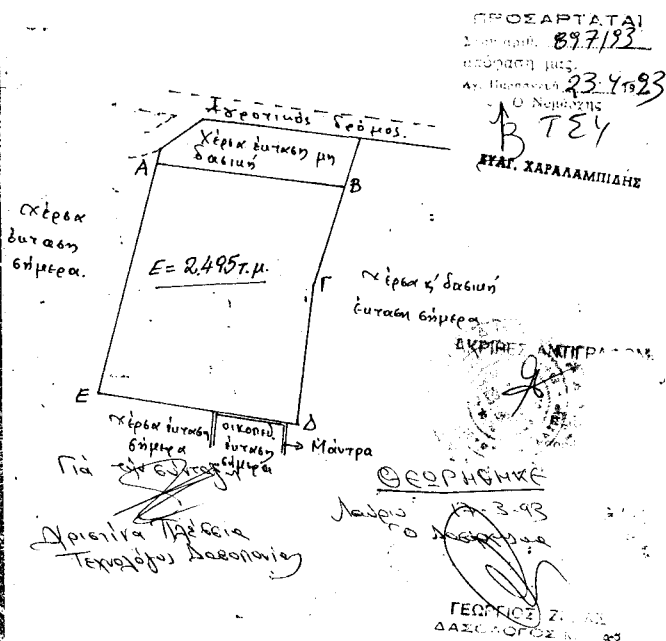 ΠΡΟΣΑΡΤΑΤΑΙ
αριθ. 897/93
απόφαση μας.
Αγ. Παρασκευή 23-4-1993
Ο Νομάρχης
ΤΣΥ
ΕΥΑΓ. ΧΑΡΑΛΑΜΠΙΔΗΣ
Αγροτικός δρόμος.
Χέρσα έκταση μη
δασική
Α
Β
χέρσα
έκταση
σήμερα.
Ε= 2.495 τ.μ.
Γ
χέρσα κ' δασική
έκταση σήμερα
ΑΚΡΙΒΕΣ ΑΝΤΙΓΡΑΦΟΝ
Ε
Δ
χέρσα έκταση
σήμερα
οικοπεδ.
έκταση
σήμερα
Μάντρα
Για την σύνταξη
Χριστίνα Πλέσσια
Τεχνολόγος Δασοπονίας
ΘΕΩΡΗΘΗΚΕ
Λαύριο 17-3-93
Ο Δασάρχης
ΓΕΩΡΓΙΟΣ
ΔΑΣΟΛΟΓΟΣ